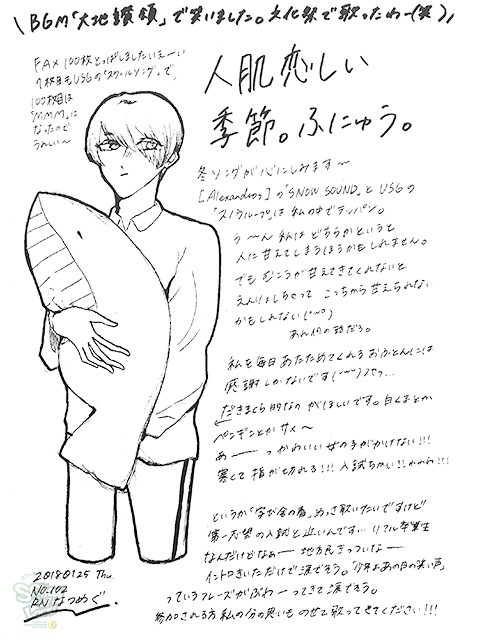 \BGM「大地讃頌」で笑いました。文化祭で歌ったわー(笑)/
FAX100枚とっぱしましたいえーい
1枚目もUSGの「スクールソング」で、
100枚目は
「MMM」に
なったのど
うれしい〜
人肌恋しい
季節。ふにゅう。
冬ソングが心にしみます〜
[Alexandros]の「SNOW SOUND」とUSGの
「スノウループ」は私の中でテッパン。
う〜ん私はどちらかというと
人に甘えてしまうほうかもしれません。
でもむこうが甘えてきてくれないと
えんりょしちゃってこっちから甘えられない
かもしれない
あれ何の話だろ。
私を毎日あたためてくれるおふとんには
感謝しかないです
だきまくら的なのがほしいです。白くまとか
ペンギンとかサメ〜
あーっかわいい女の子がかけない!!!
寒くて指が切れる!!!入試ちかい!!わわわ!!!
というか「学び舎の春」めっさ歌いたいですけど
第一志望の入試と近いんです…リアル卒業生
なんだけどなぁー地方民きっついなー
イントロきいただけで涙でそう。「少年よあの日の笑い声」
っていうフレーズがぶわーってきて涙でそう。
参加される方私の分の思いものせて歌ってきてください!!!
20180125 Thu.
NO.102
RNなつめぐ